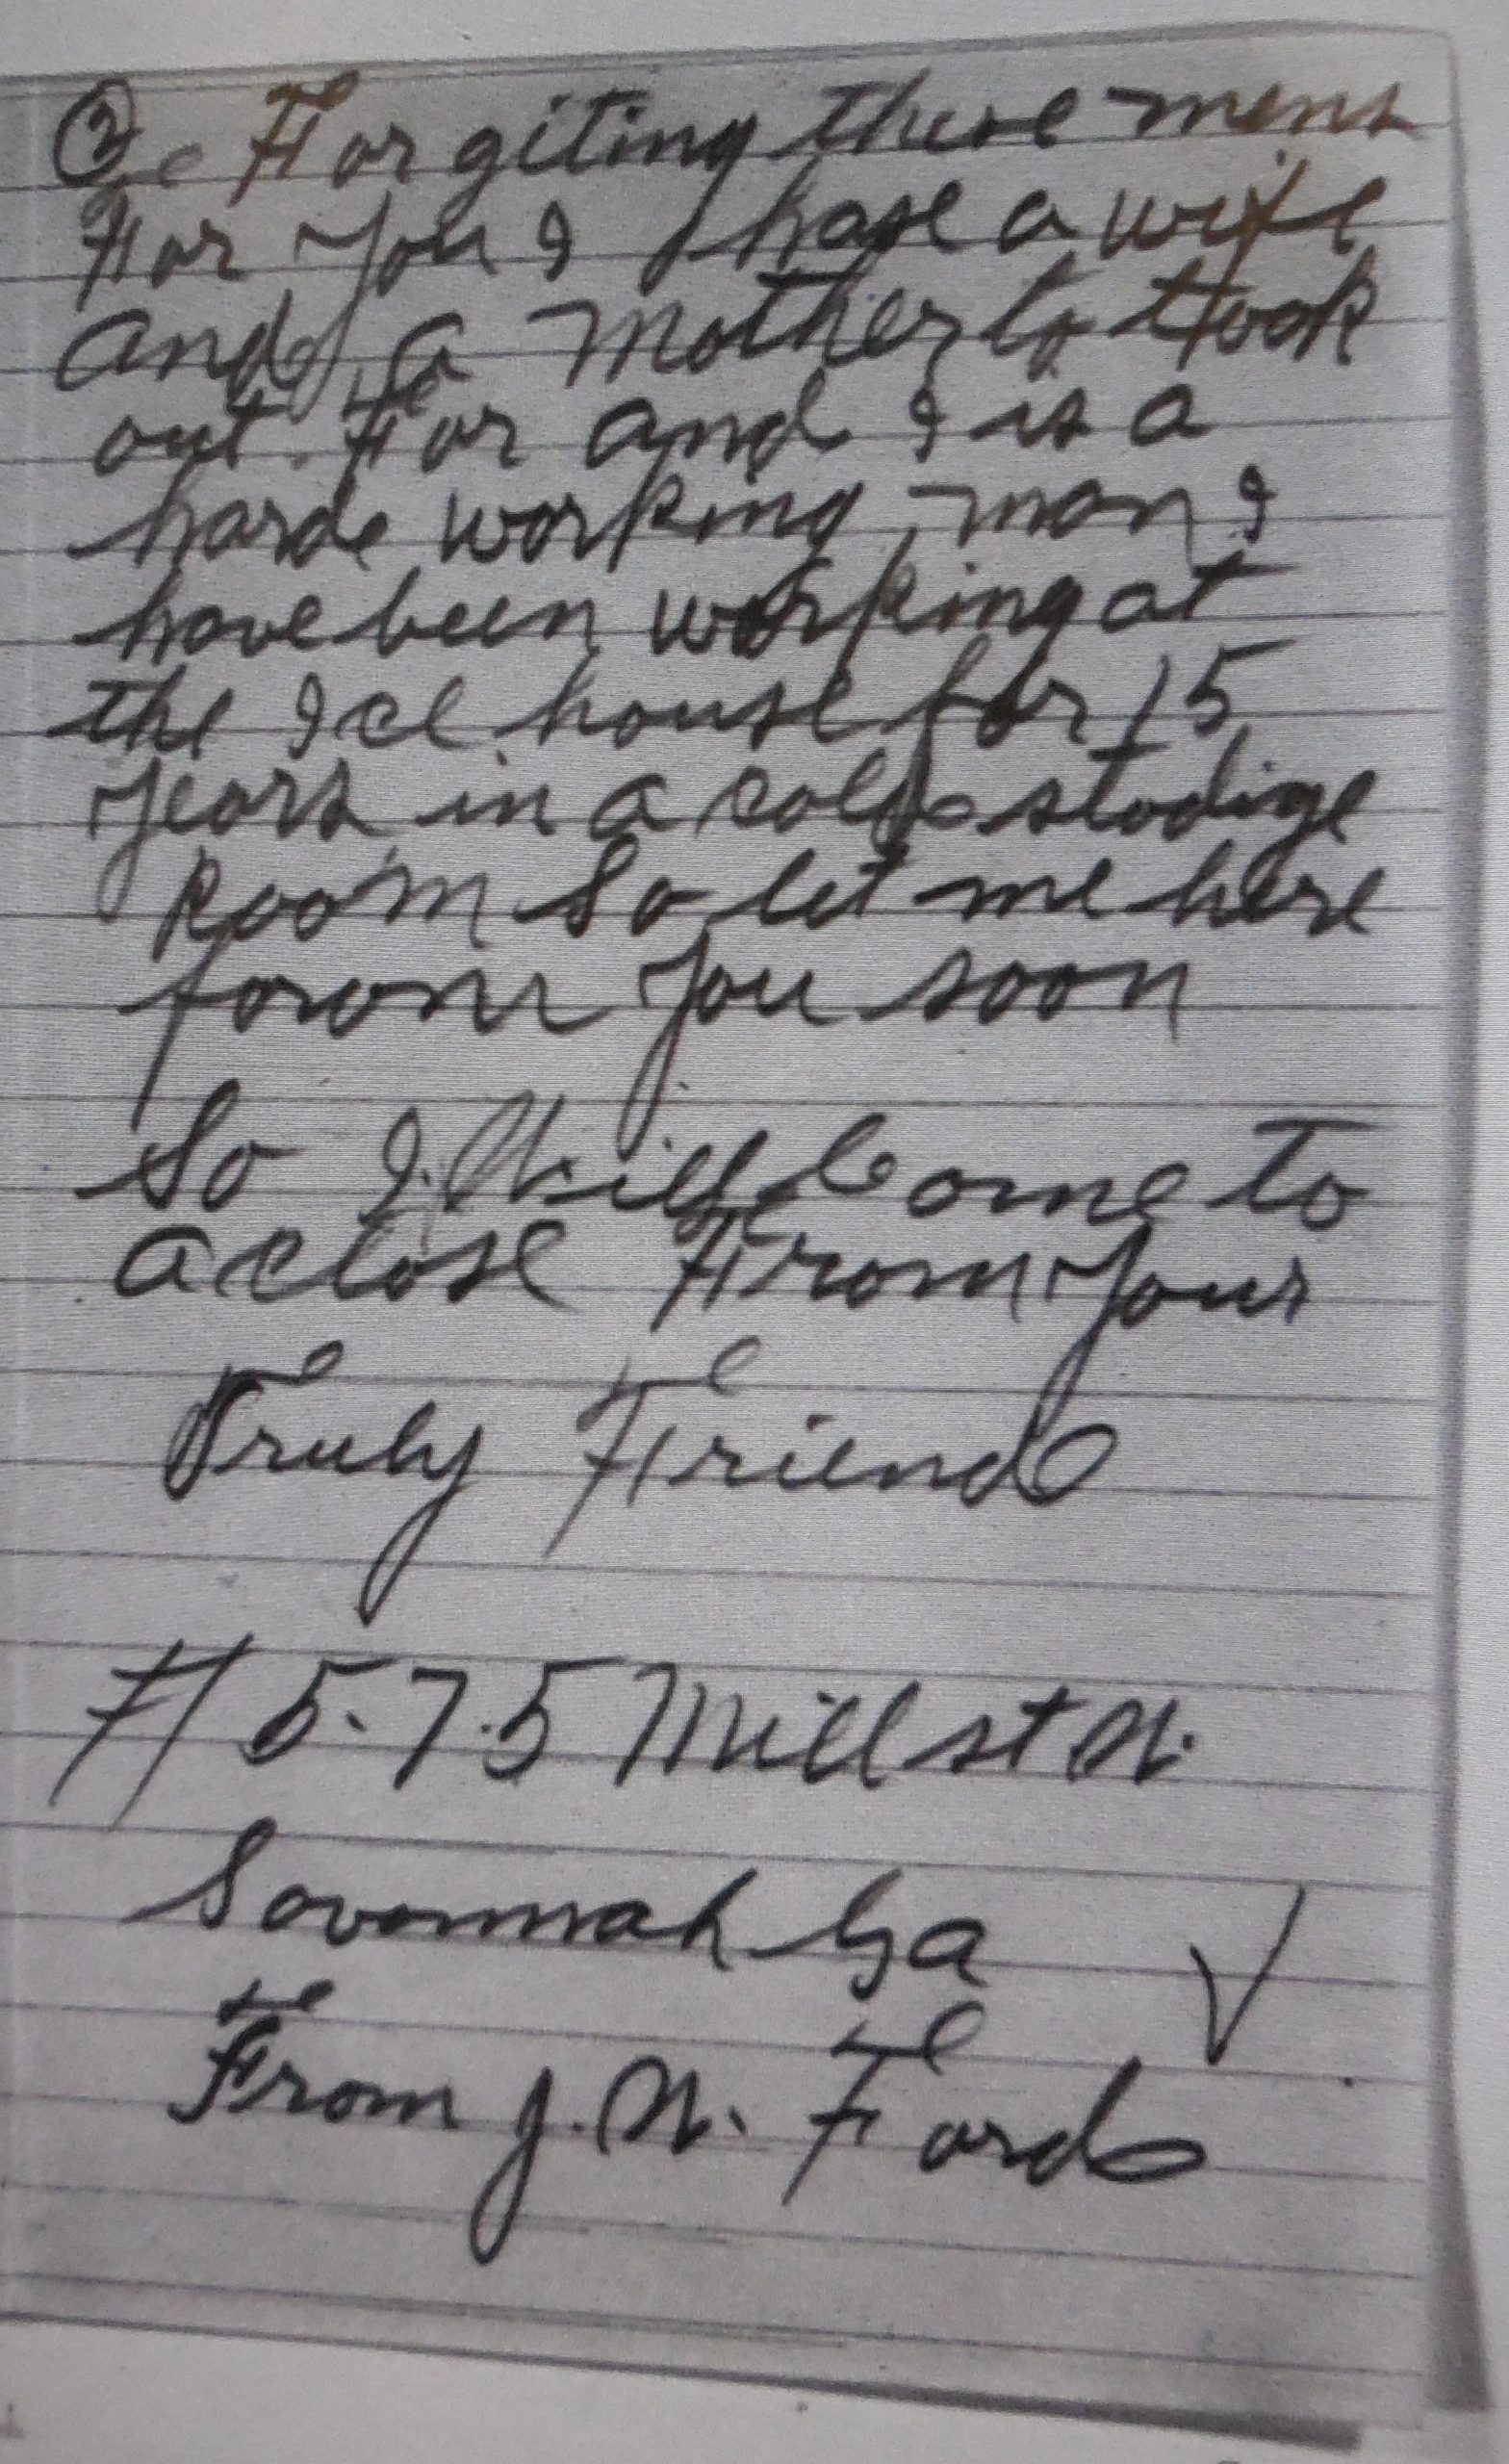 ② For giting these mens
For you I have a wife
and a Mother to look
out For and I is a
harde working man I
have been working at
the Ice house for 15
years in a cold stodige
Room So let me here
forome you soon
So I Will Come to
a close From your
Truly Friend
# 5.7.5 Mill st N.
Savannah Ga
From J. N. Ford